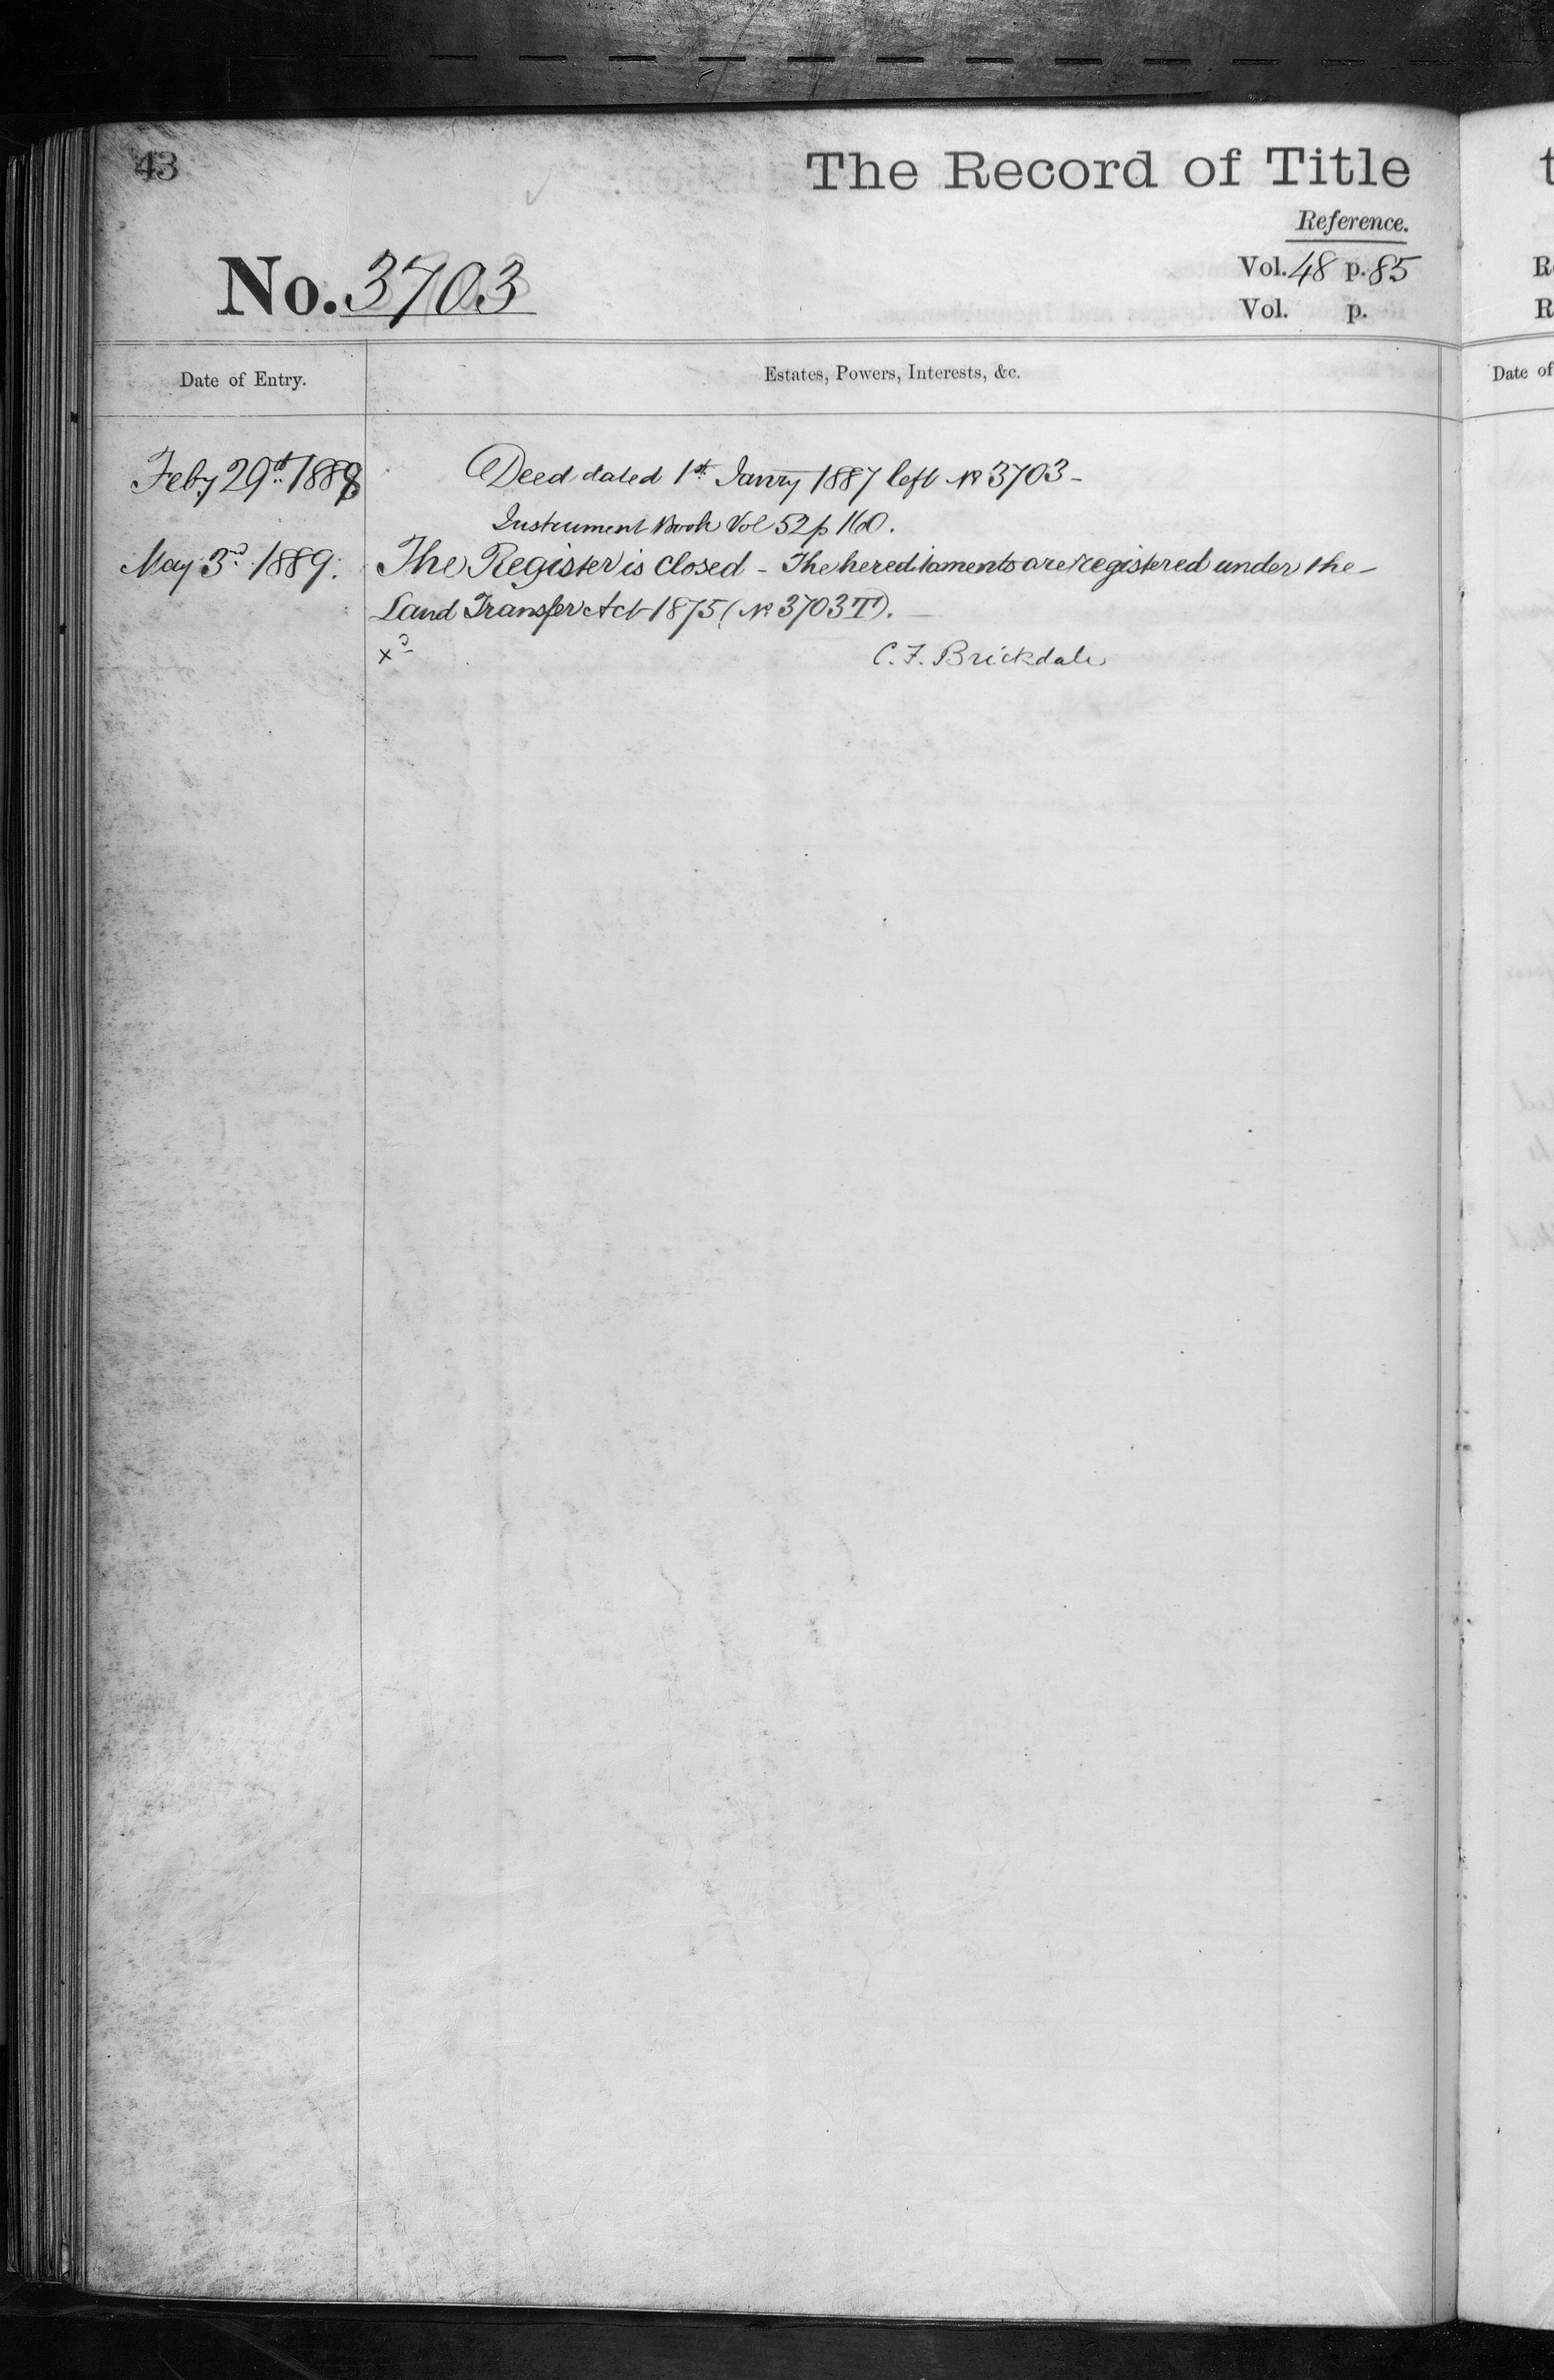 43
The Record of Title
Reference.
No. 3703
Vol. 48 p. 85
Vol. p.
Date of Entry.
Estates, Powers, Interests, &c.
Feby 29th 1888
Deed dated 1st Janry 1887 left No 3703 -
Instrument Book Vol 52 p 160.
May 3rd 1889.
The Register is closed - The hereditaments are registered under the -
Land Transfer Act 1875 (No 3703 T). -
xd
C. F. Brickdale
Date of